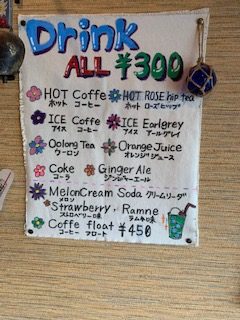 Drink
ALL ¥300
HOT Coffe HOT ROSE hip tea
ホット コーヒー ホット ローズヒップ
ICE Coffe ICE Earlgrey
アイス コーヒー アイス アールグレイ
Oolong Tea Orange Juice
ウーロン オレンジジュース
Coke Ginger Ale
コーラ ジンジャーエール
MelonCream Soda クリームソーダ
メロン
Strawberry, Ramne
ストロベリー味 ラムネ味
Coffe float ¥450
コーヒー フロート